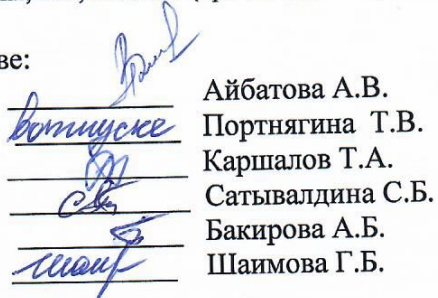 ве:
Айбатова А.В.
вотпуске Портнягина Т.В.
Каршалов Т.А.
Сатывалдина С.Б.
Бакирова А.Б.
Шаимова Г.Б.